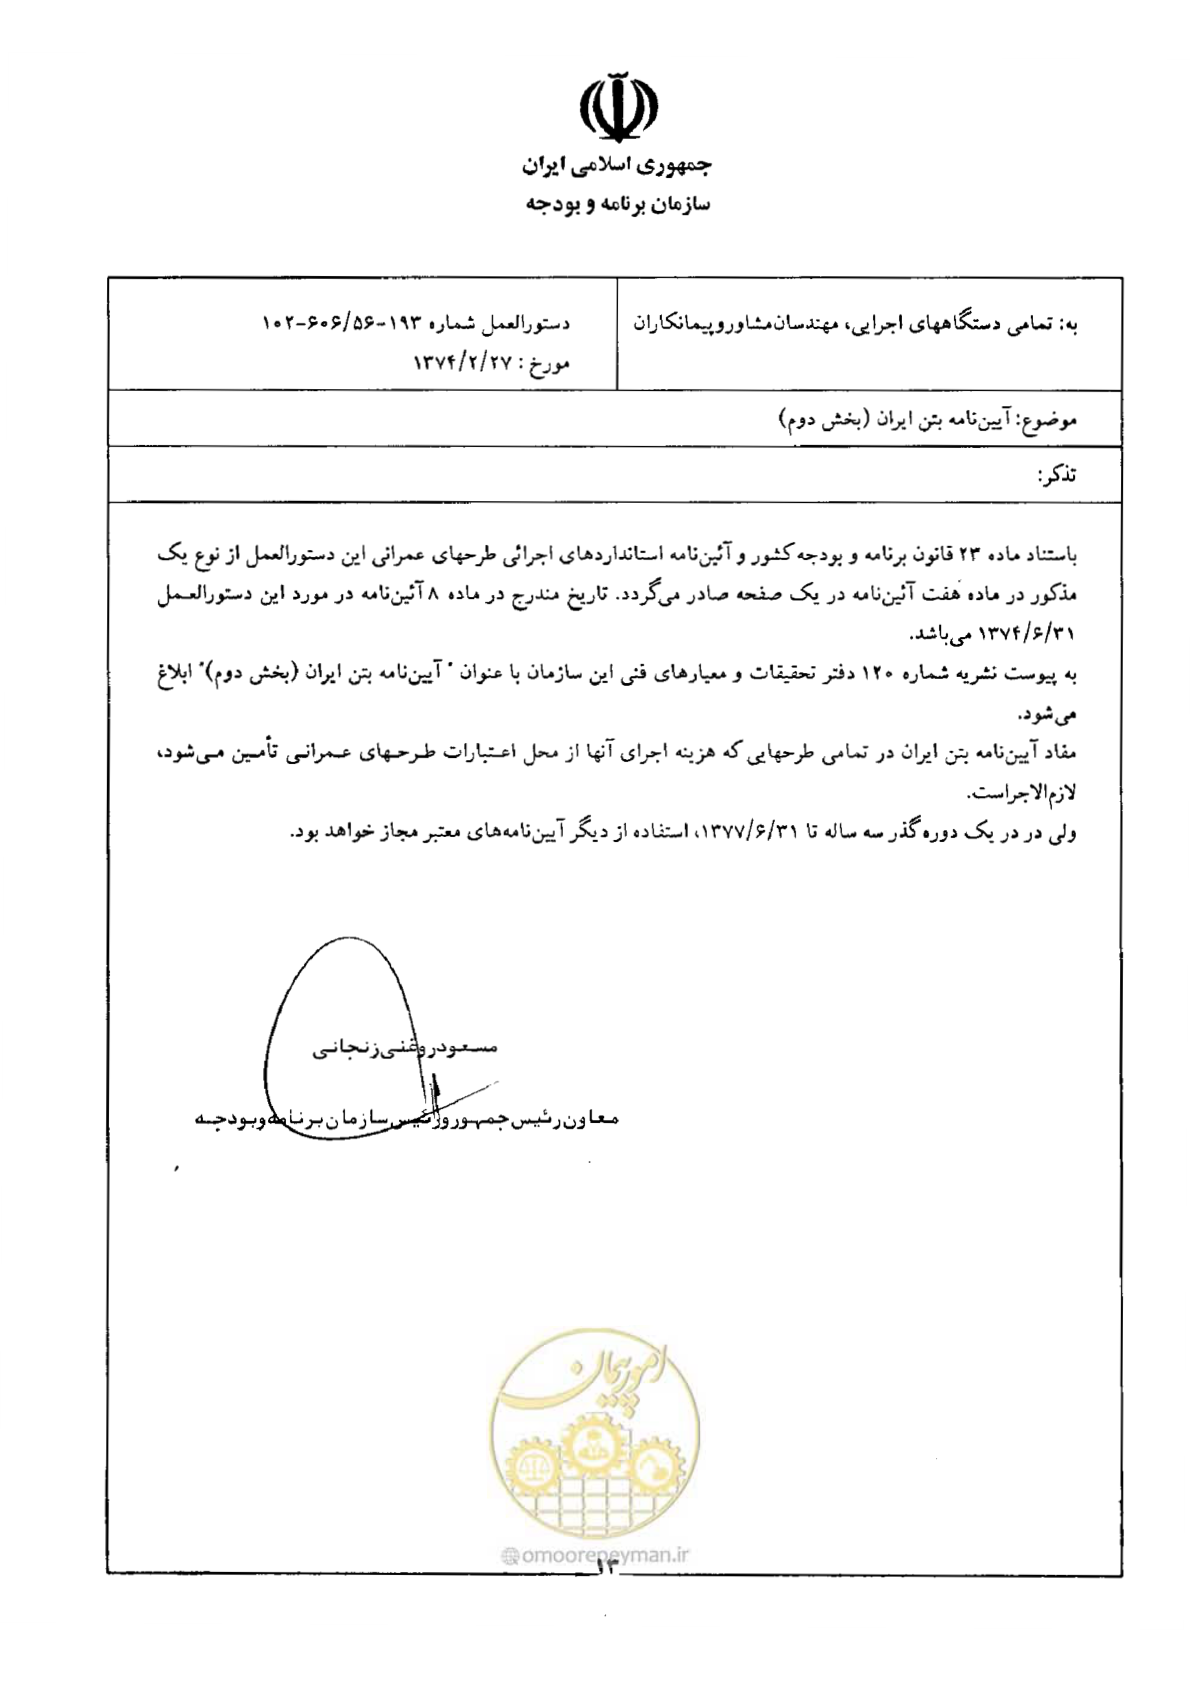 جمهوری اسلامی ایران
سازمان برنامه و بودجه
به: تمامی دستگاههای اجرایی، مهندسان مشاور و پیمانکاران
دستورالعمل شماره ۱۹۳-۱۰۲-۶۰۶/۵۶
مورخ : ۱۳۷۴/۲/۲۷
موضوع: آیین‌نامه بتن ایران (بخش دوم)
تذکر:
باستناد ماده ۲۳ قانون برنامه و بودجه کشور و آئین‌نامه استانداردهای اجرائی طرحهای عمرانی این دستورالعمل از نوع یک
مذکور در ماده هفت آئین‌نامه در یک صفحه صادر می‌گردد. تاریخ مندرج در ماده ۸ آئین‌نامه در مورد این دستورالعمل
۱۳۷۴/۶/۳۱ می‌باشد.
به پیوست نشریه شماره ۱۲۰ دفتر تحقیقات و معیارهای فنی این سازمان با عنوان "آیین‌نامه بتن ایران (بخش دوم)" ابلاغ
می‌شود.
مفاد آیین‌نامه بتن ایران در تمامی طرحهایی که هزینه اجرای آنها از محل اعتبارات طرحهای عمرانی تأمین می‌شود،
لازم‌الاجراست.
ولی در در یک دوره گذر سه ساله تا ۱۳۷۷/۶/۳۱، استفاده از دیگر آیین‌نامه‌های معتبر مجاز خواهد بود.
مسعود روغنی زنجانی
معاون رئیس جمهور و رئیس سازمان برنامه و بودجه
امور پیمان
@omoorepeyman.ir
۱۳